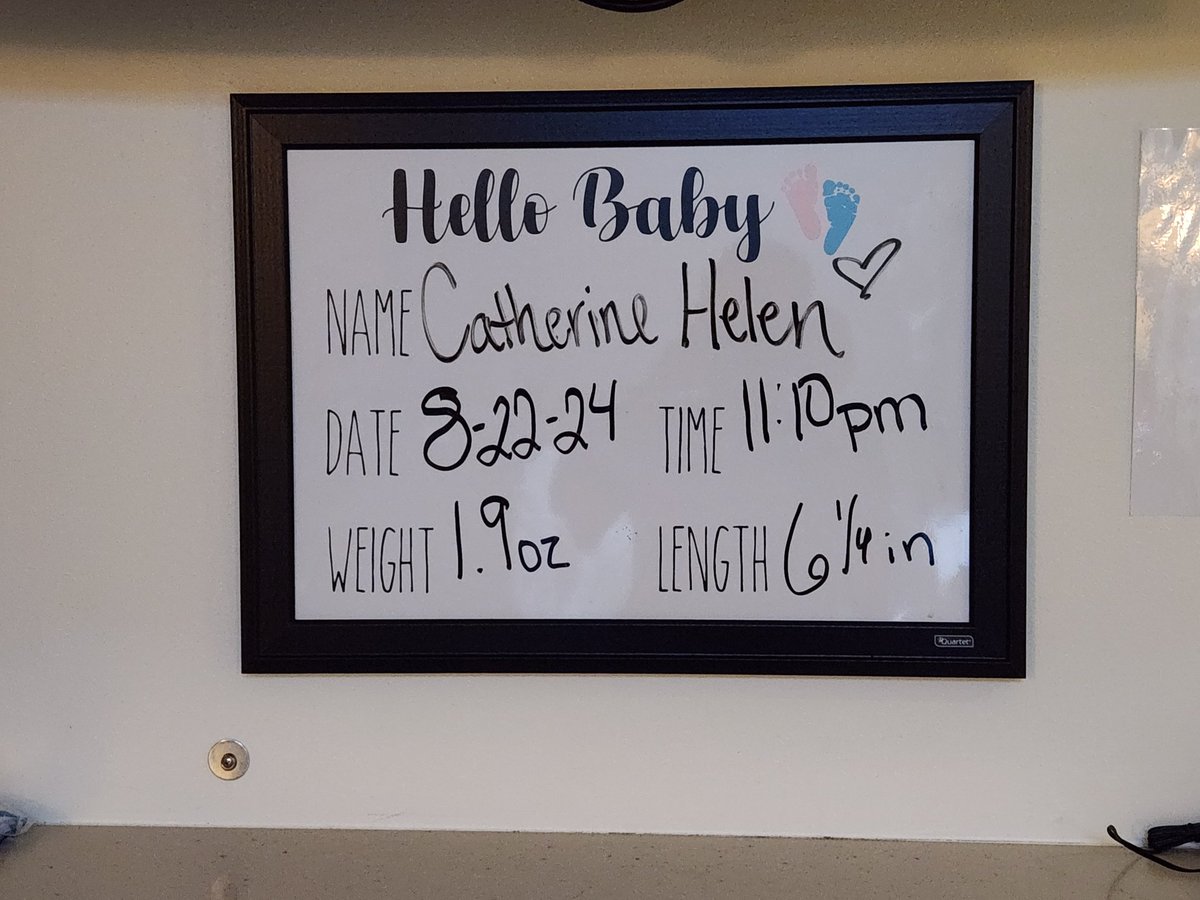 Hello Baby
NAME Catherine Helen
DATE 8-22-24 TIME 11:10pm
WEIGHT 1.9oz LENGTH 6 1/4 in
Quartet